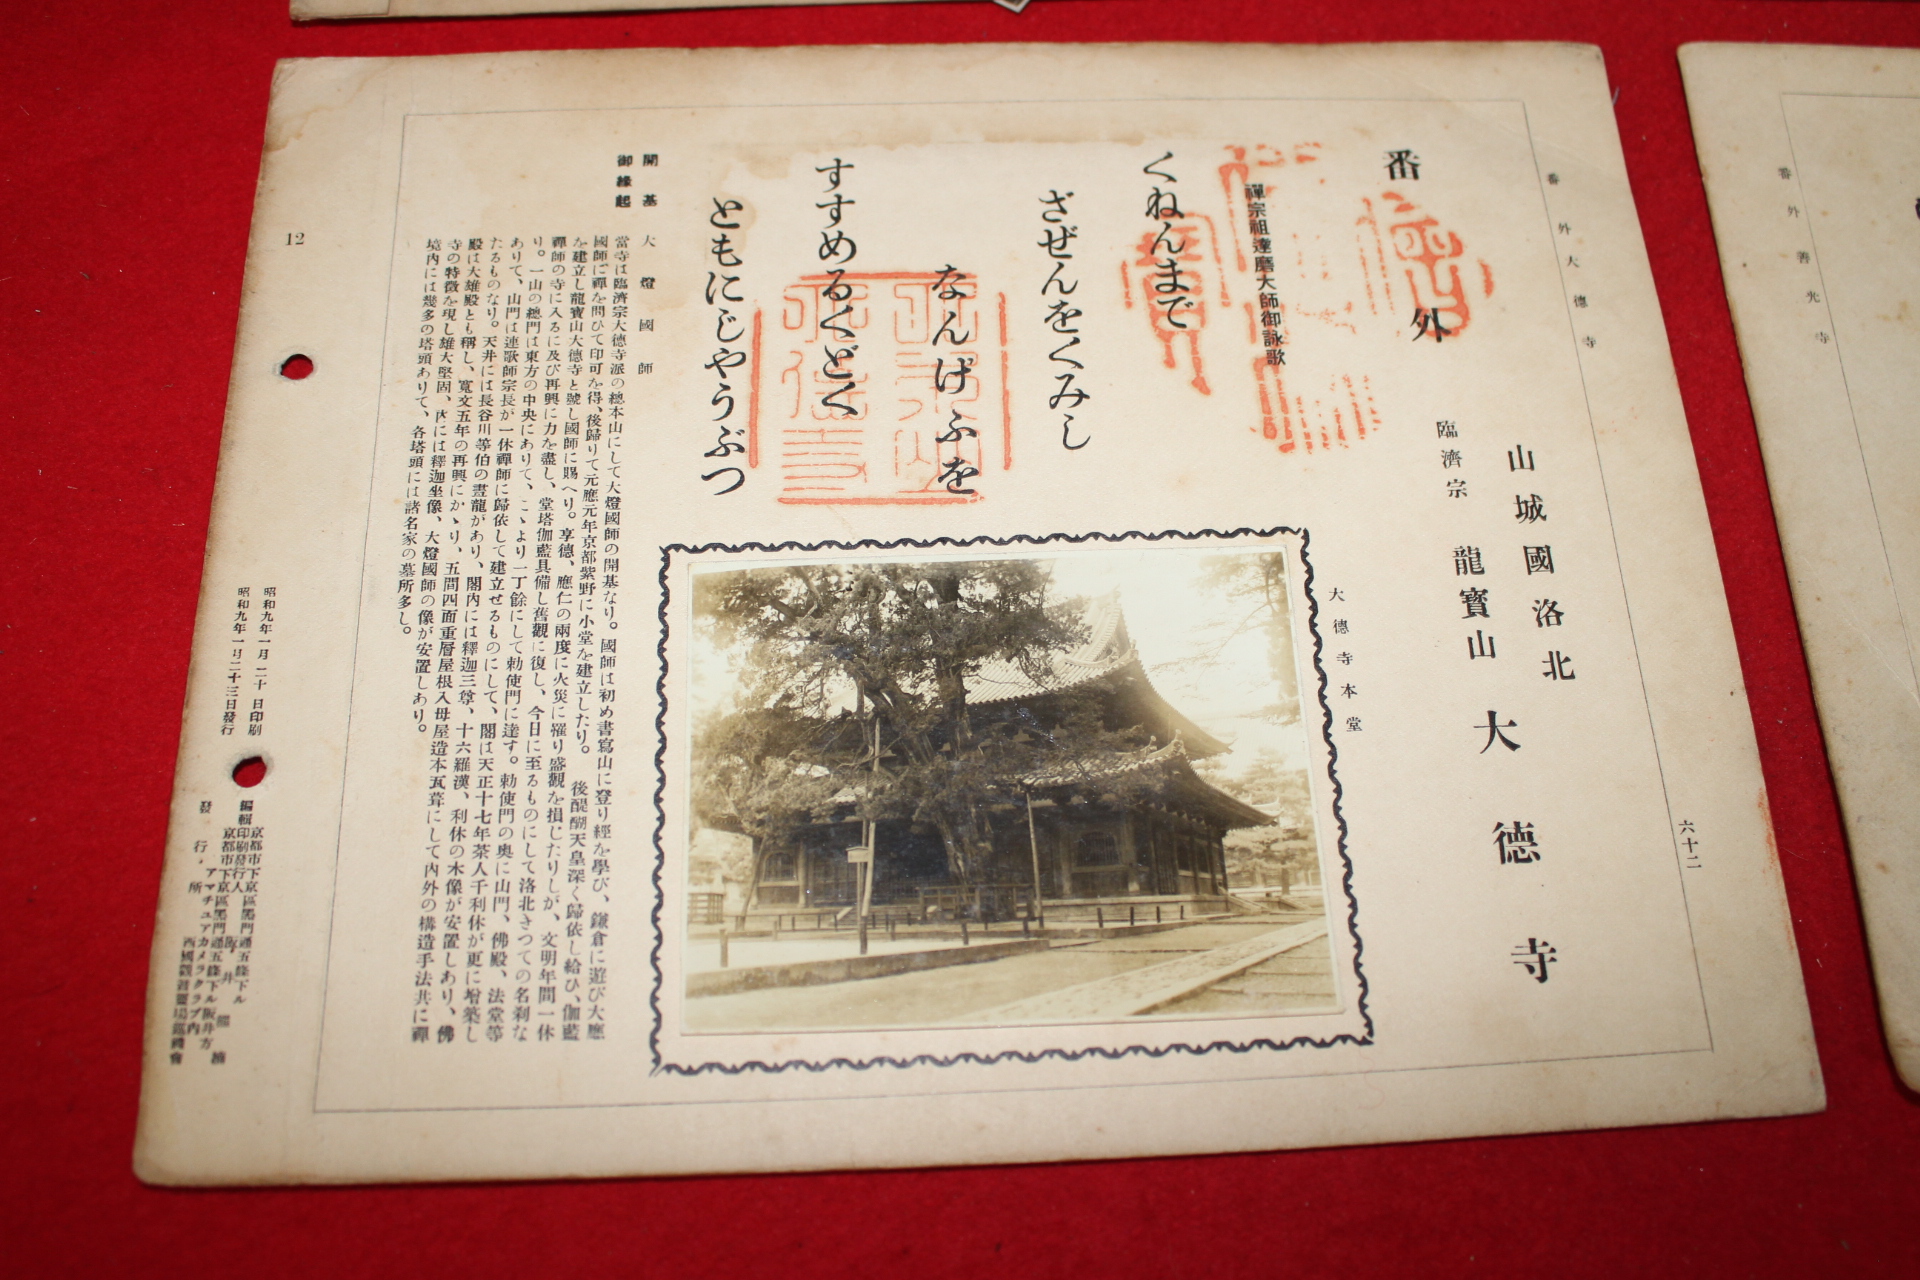 番外大德寺
六十二
番外
山城國洛北
臨濟宗
龍寶山
大德寺
禪宗祖達磨大師御詠歌
くねんまで
ざぜんをくみし
なんげふを
すすめるくどく
ともにじやうぶつ
大德寺本堂
開基
大燈國師
御緣起
當寺は臨濟宗大德寺派の總本山にして大燈國師の開基なり。國師は初め書寫山に登り經を學び、鎌倉に遊び大應
國師に禪を問ひて印可を得、後歸りて元應元年京都紫野に小堂を建立したり。後醍醐天皇深く歸依し給ひ、伽藍
を建立し龍寶山大德寺と號し國師に賜へり。享德、應仁の兩度に火災に罹り盛觀を損じたりしが、文明年間一休
禪師の寺に入るに及び再興に力を盡し、堂塔伽藍具備し舊觀に復し、今日に至るものにして洛北きつての名刹な
り。一山の總門は東方の中央にありて、こゝより一丁餘にして勅使門に達す。勅使門の奥に山門、佛殿、法堂等
ありて、山門は連歌師宗長が一休禪師に歸依して建立せるものにして、閣は天正十七年茶人千利休が更に增築し
たるものなり。天井には長谷川等伯の畫龍があり、閣内には釋迦三尊、十六羅漢、利休の木像が安置しあり、佛
殿は大雄殿とも稱し、寬文五年の再興にかゝり、五間四面重層屋根入母屋造本瓦葺にして内外の構造手法共に禪
寺の特徵を現し雄大堅固、内には釋迦坐像、大燈國師の像が安置しあり。
境内には幾多の塔頭ありて、各塔頭には諸名家の墓所多し。
12
昭和九年一月二十日印刷
昭和九年一月二十三日發行
京都市下京區黑門通五條下ル
編輯印刷發行人
京都市下京區黑門通五條下ル阪井方
發行所
アマチュアカメラクラブ内
番外善光寺